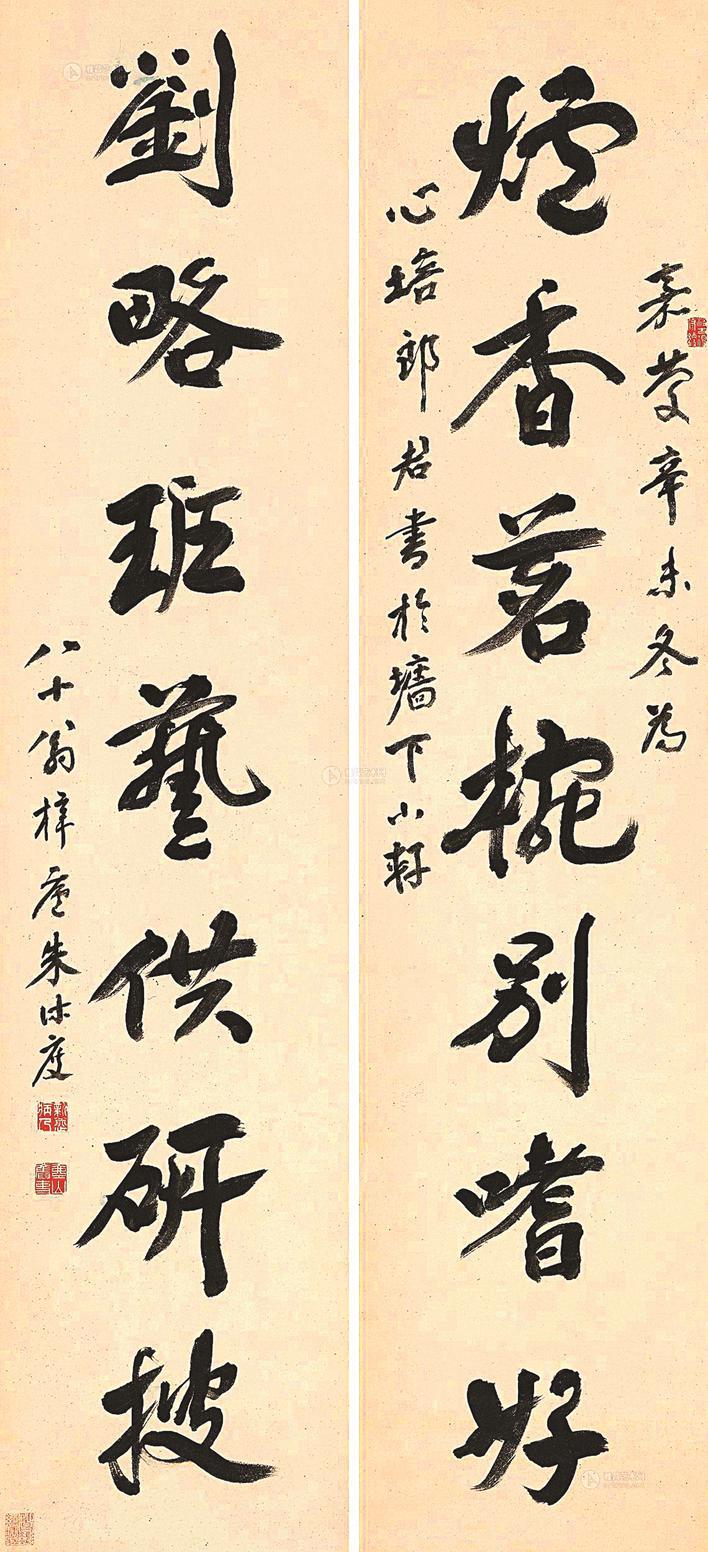 爐香茗椀別嗜好
嘉慶辛未冬為
心培郎君書於墻下小軒
劉略班藝供研搜
八十翁梓廬朱休度